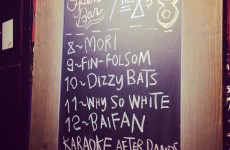 8~MORI
9~FIN-FOLSOM
10~DIZZY BATS
11~WHY SO WHITE
12~BAIFAN
KARAOKE AFTER BANDS